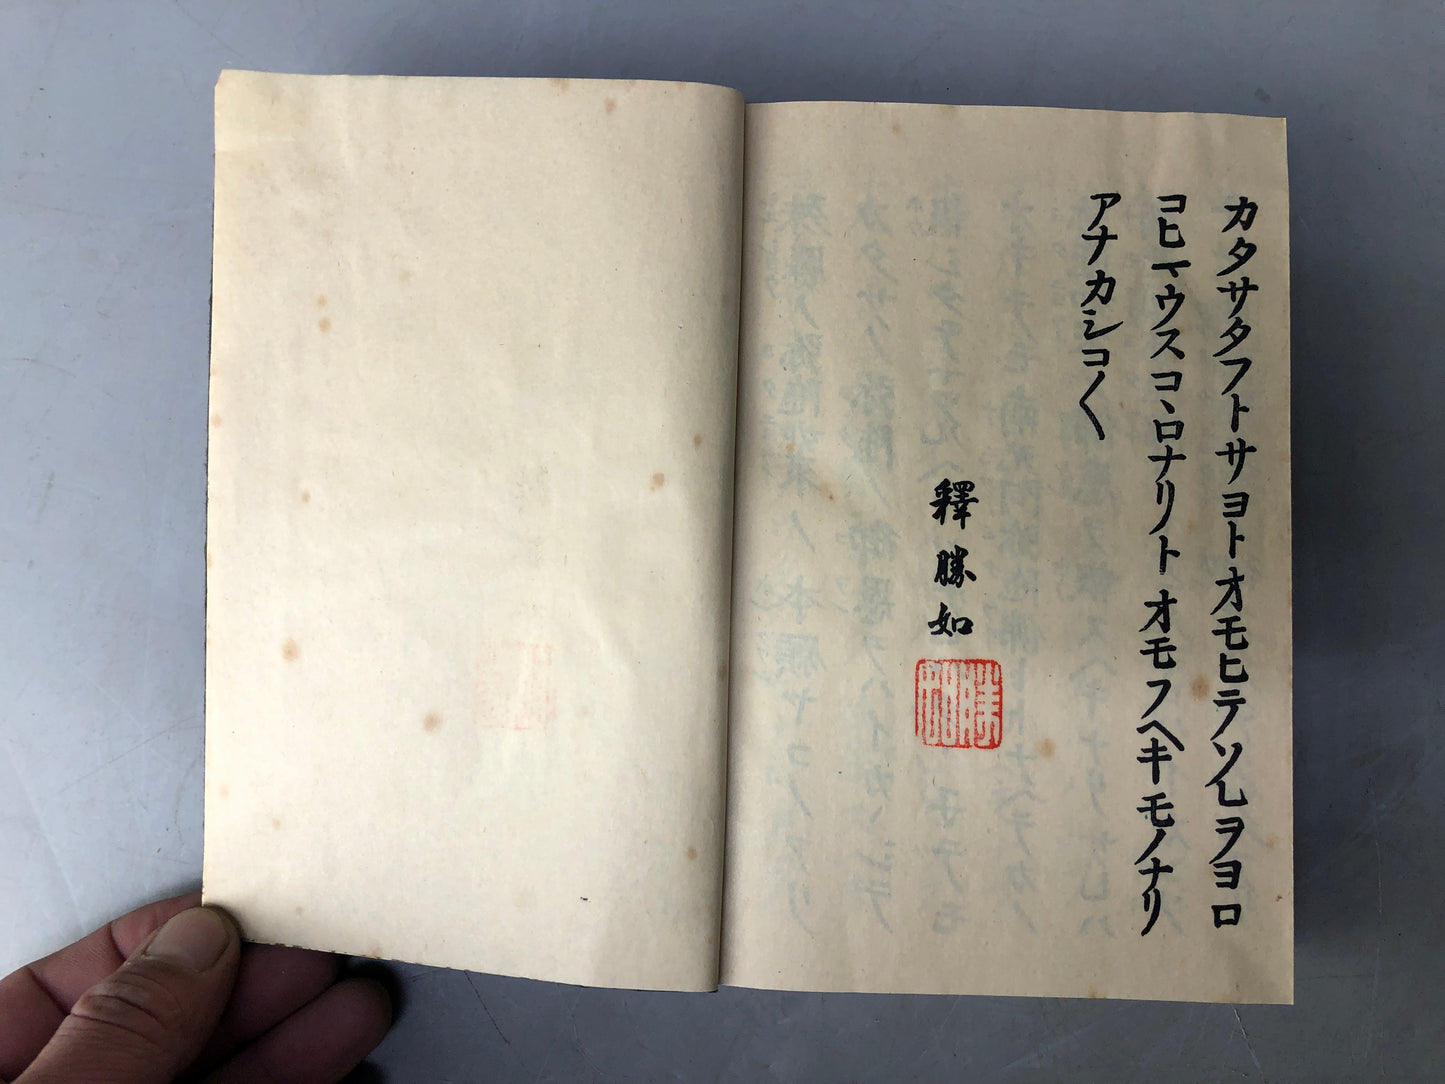 カタサタフトサヨトオモヒテソレヲヨロ
コヒマウスコヽロナリトオモフヘキモノナリ
アナカシコ〳〵
釋勝如
勝如